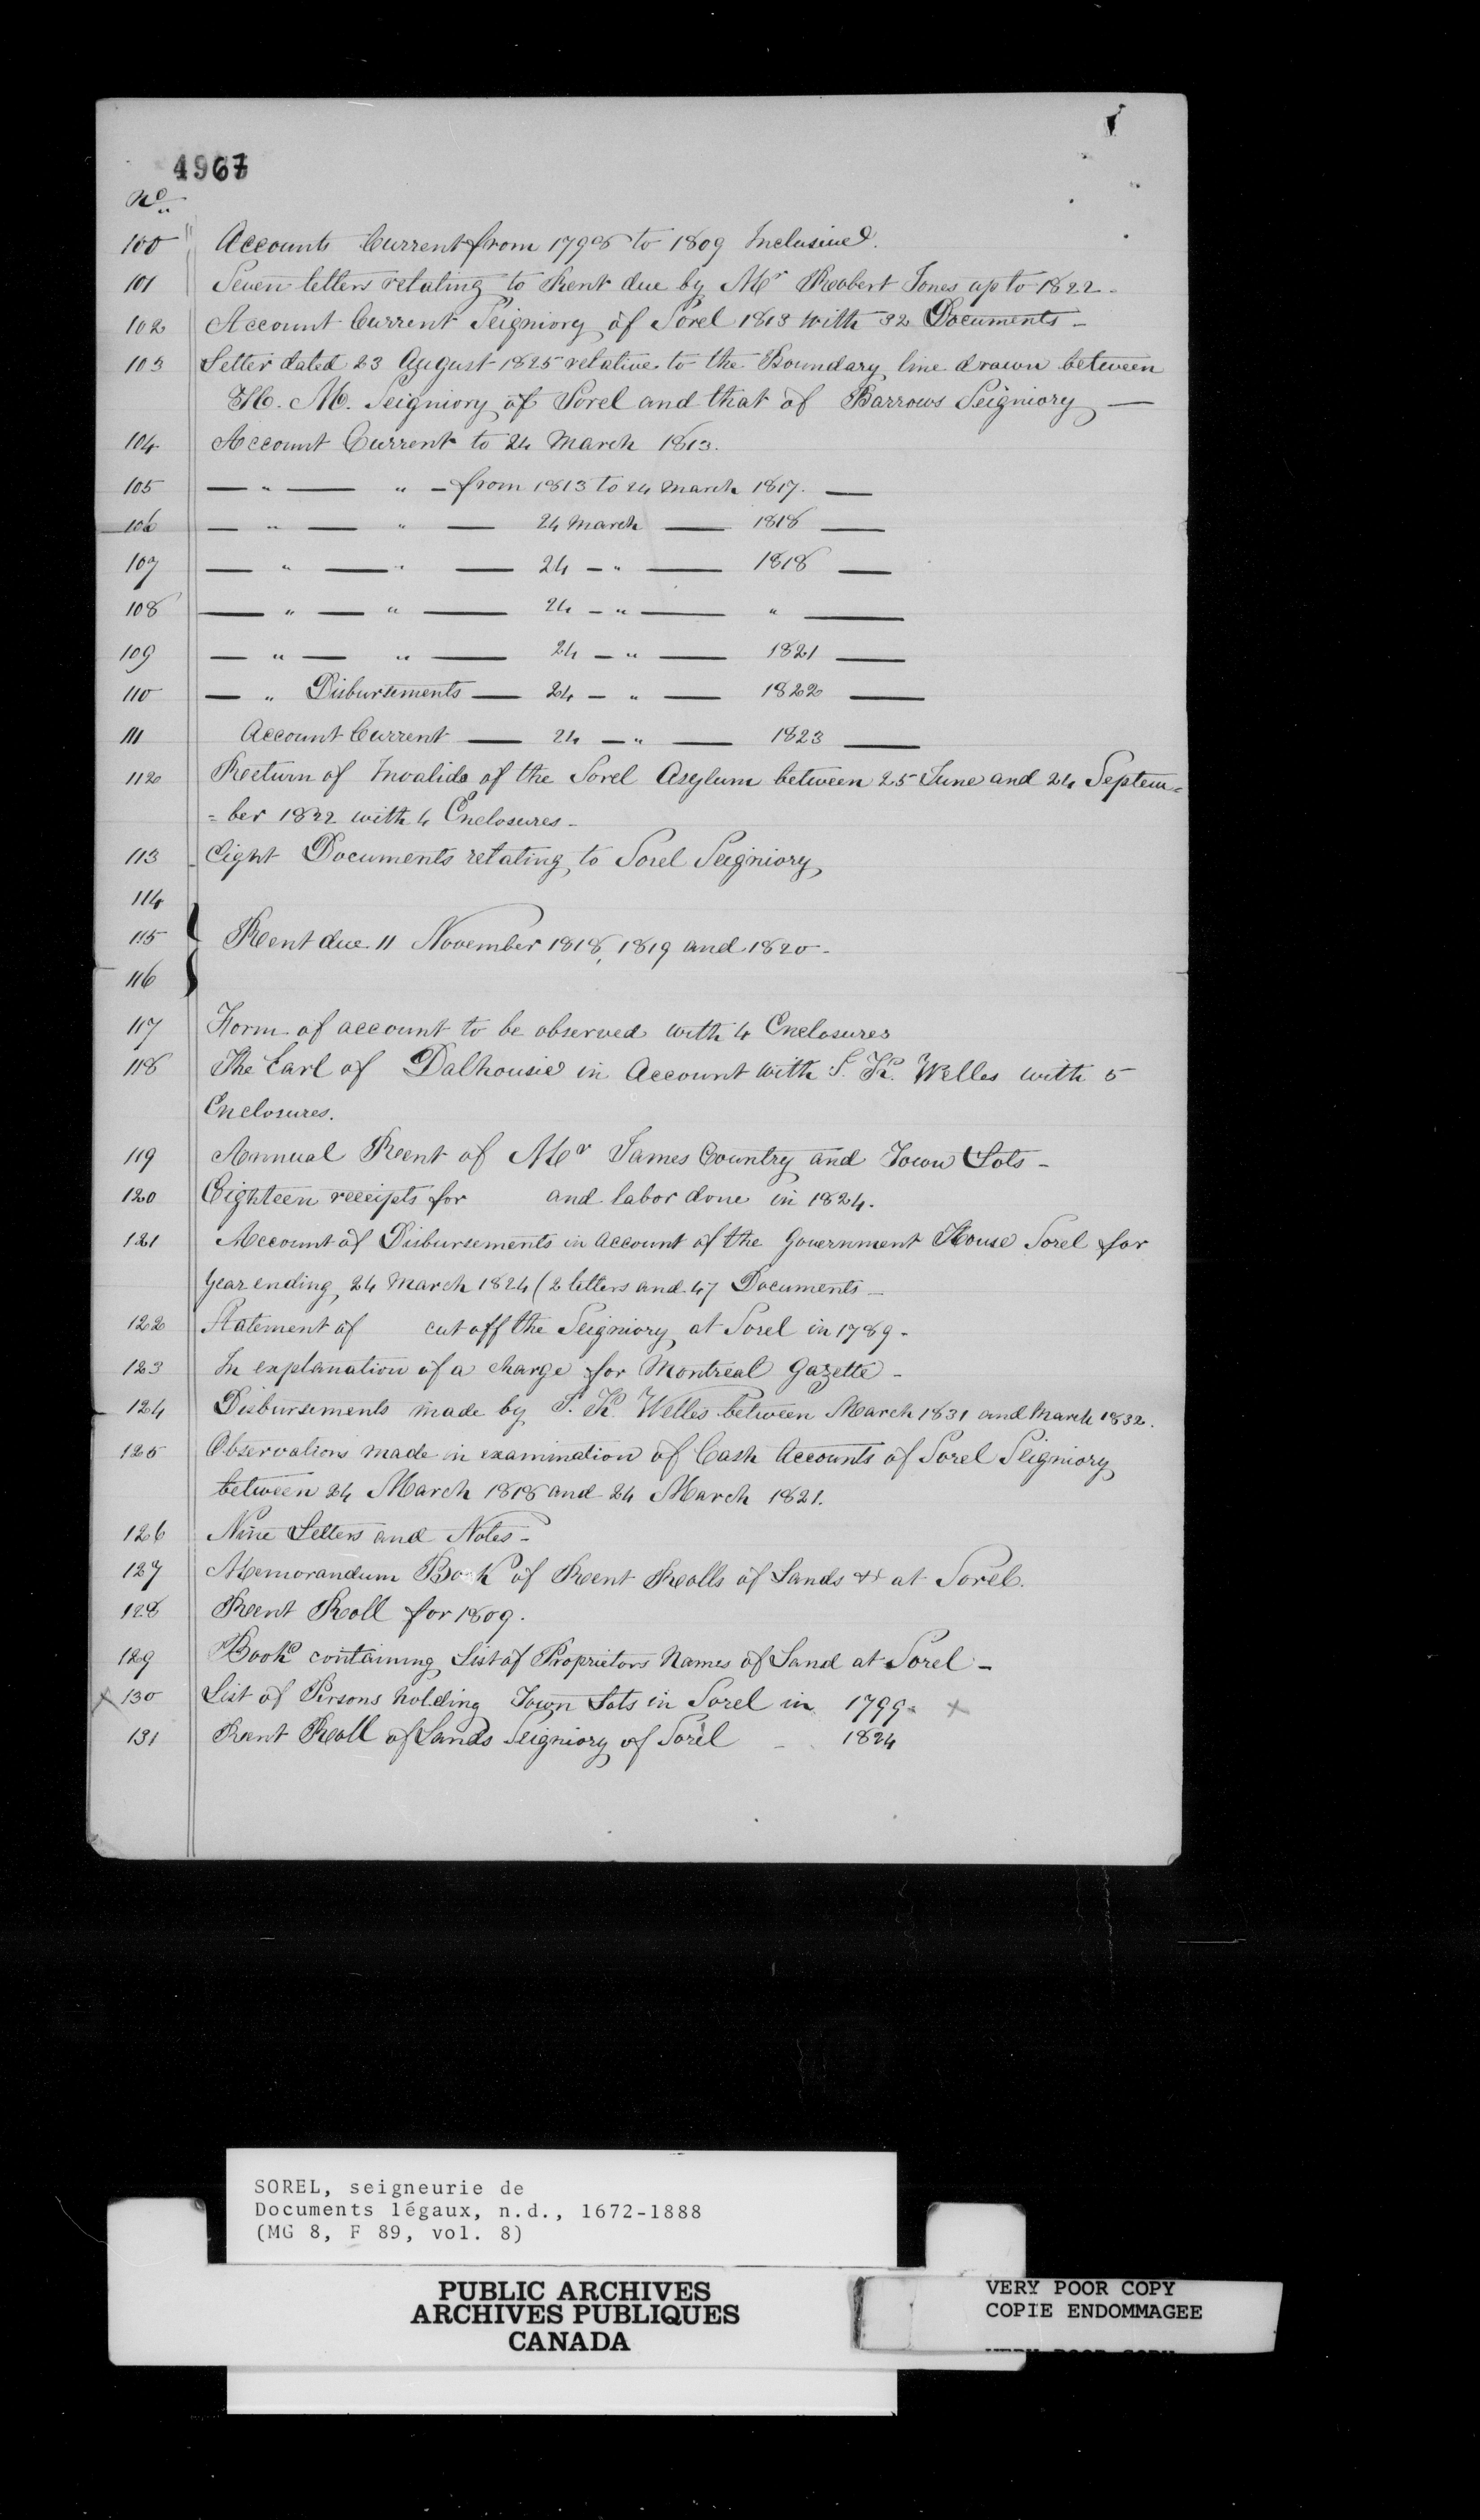 4967
No
100 Accounts Current from 1798 to 1809 Inclusive.
101 Seven letters relating to Rent due by Mr Robert Jones up to 1822-
102 Account Current Seigniory of Sorel 1813 with 32 Documents-
103 Letter dated 23 August 1825 relative to the Boundary line drawn between
H. M. Seigniory of Sorel and that of Barrows Seigniory —
104 Account Current to 24 March 1813.
105 — " — " - from 1813 to 24 March 1817. —
106 — " — " — 24 March — 1818 —
107 — " — " — 24 - " — 1818 —
108 — " — " — 24 - " — " —
109 — " — " — 24 - " — 1821 —
110 — " Disbursements — 24 - " — 1822 —
111 Account Current — 24 - " — 1823 —
112 Return of Invalids of the Sorel Asylum between 25 June and 24 Septem=
=ber 1832 with 4 Enclosures-
113 Eight Documents relating to Sorel Seigniory
114
115 } Rent due 11 November 1818, 1819 and 1820-
116
117 Form of account to be observed with 4 Enclosures
118 The Earl of Dalhousie in Account with S. K. Welles with 5
Enclosures.
119 Annual Rent of Mr James Country and Town Lots-
120 Eighteen receipts for and labor done in 1824.
121 Account of Disbursements in account of the Government House Sorel for
year ending 24 March 1824 (2 letters and 47 Documents-
122 Statement of cut off the Seigniory at Sorel in 1789-
123 In explanation of a charge for Montreal Gazette-
124 Disbursements made by S. K. Welles between March 1831 and March 1832.
125 Observations made in examination of Cash Accounts of Sorel Seigniory
between 24 March 1818 and 24 March 1821.
126 Nine Letters and Notes-
127 Memorandum Book of Rent Rolls of Lands &c at Sorel.
128 Rent Roll for 1809.
129 Book containing List of Proprietors Names of Land at Sorel-
x 130 List of Persons holding Town Lots in Sorel in 1799- x
131 Rent Roll of Lands Seigniory of Sorel - 1824
SOREL, seigneurie de
Documents légaux, n.d., 1672-1888
(MG 8, F 89, vol. 8)
PUBLIC ARCHIVES
ARCHIVES PUBLIQUES
CANADA
VERY POOR COPY
COPIE ENDOMMAGEE
VERY POOR COPY